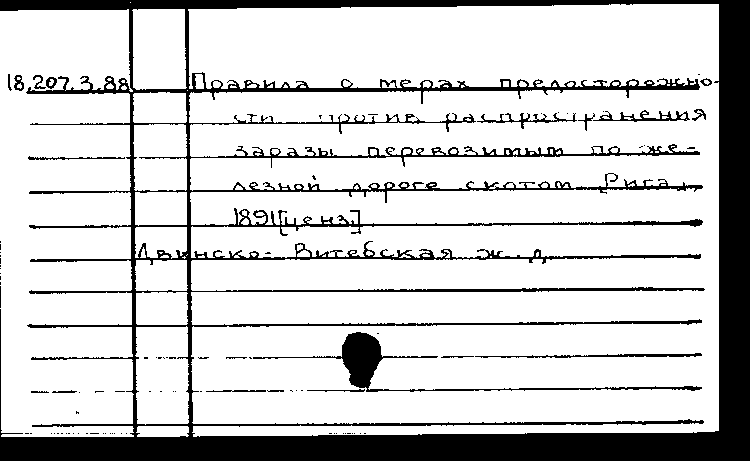 18.207.3.88 Правила о мерах предосторожно-
сти против распространения
заразы перевозимым по же-
лезной дороге скотом [Рига],
1891[ценз]
Двинско-Витебская ж.д.